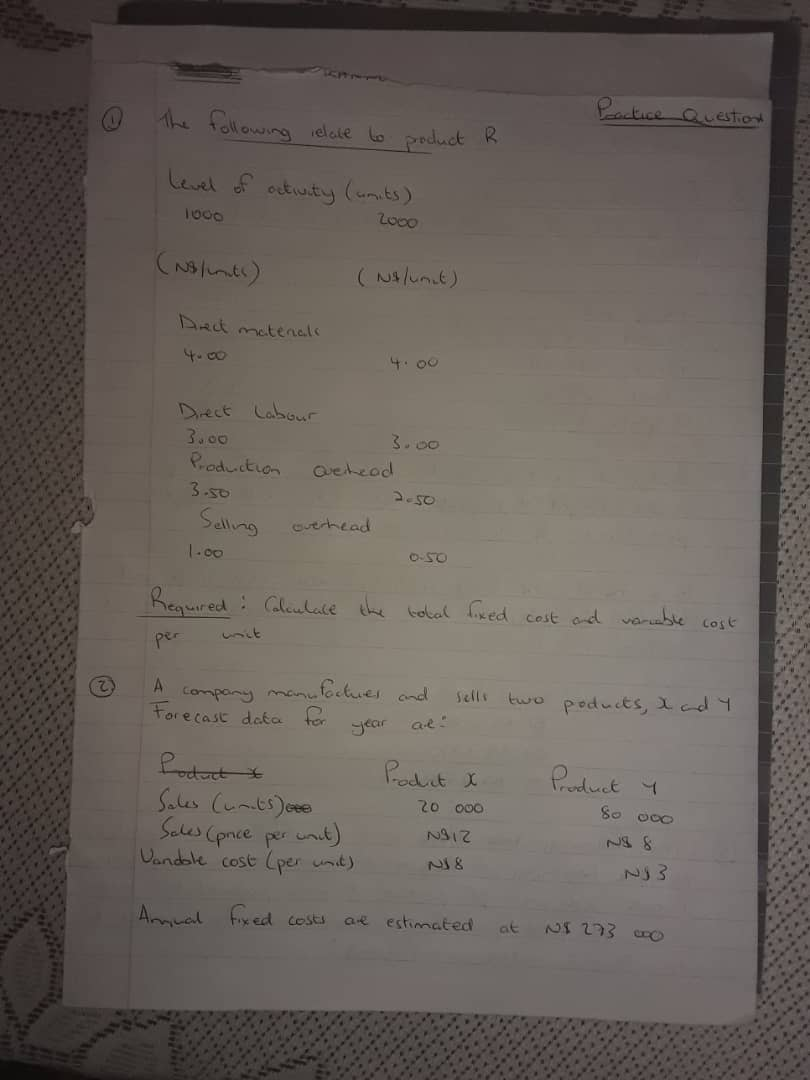 Practice Question
① The following relate to product R
Level of activity (units)
1000 2000
(N$/units) (N$/unit)
Direct materials
4.00 4.00
Direct Labour
3.00 3.00
Production overhead
3.50 2.50
Selling overhead
1.00 0.50
Required: Calculate the total fixed cost and variable cost
per unit
② A company manufactures and sells two poducts, X and Y
Forecast data for year are:
Product X Product Y
Sales (units) 20 000 80 000
Sales (price per unit) N$12 N$ 8
Variable cost (per unit) N$8 N$3
Annual fixed costs are estimated at N$ 273 000